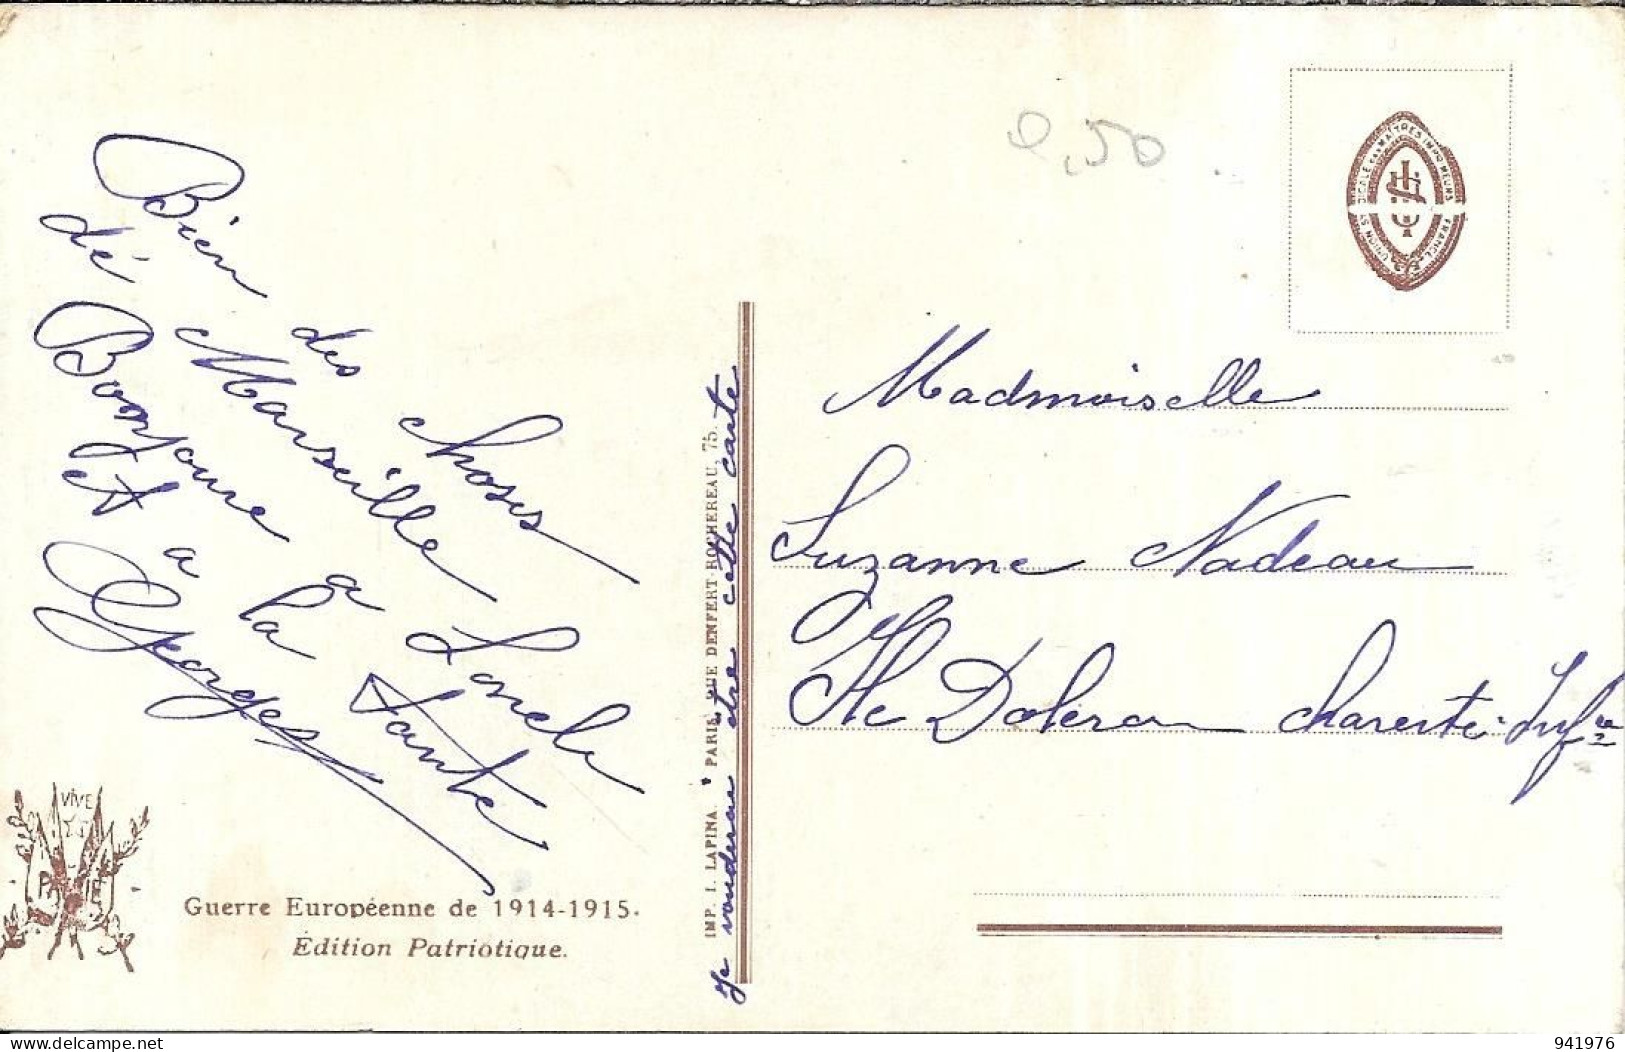 Bien des choses
dé Marseille
Bonjour a Loncle
et a la Tante
Georges
VIVE
LA
PATRIE
Guerre Européenne de 1914-1915.
Édition Patriotique.
IMP. I. LAPINA. • PARIS, RUE DENFERT-ROCHEREAU, 75.
Je vouderai etre cette carte
0,50
UNION SYNDICALE DES MAITRES IMPRIMEURS FRANCE
Madmoiselle
Suzanne Nadeau
Ile Doleron charente Infre
delcampe.net
941976